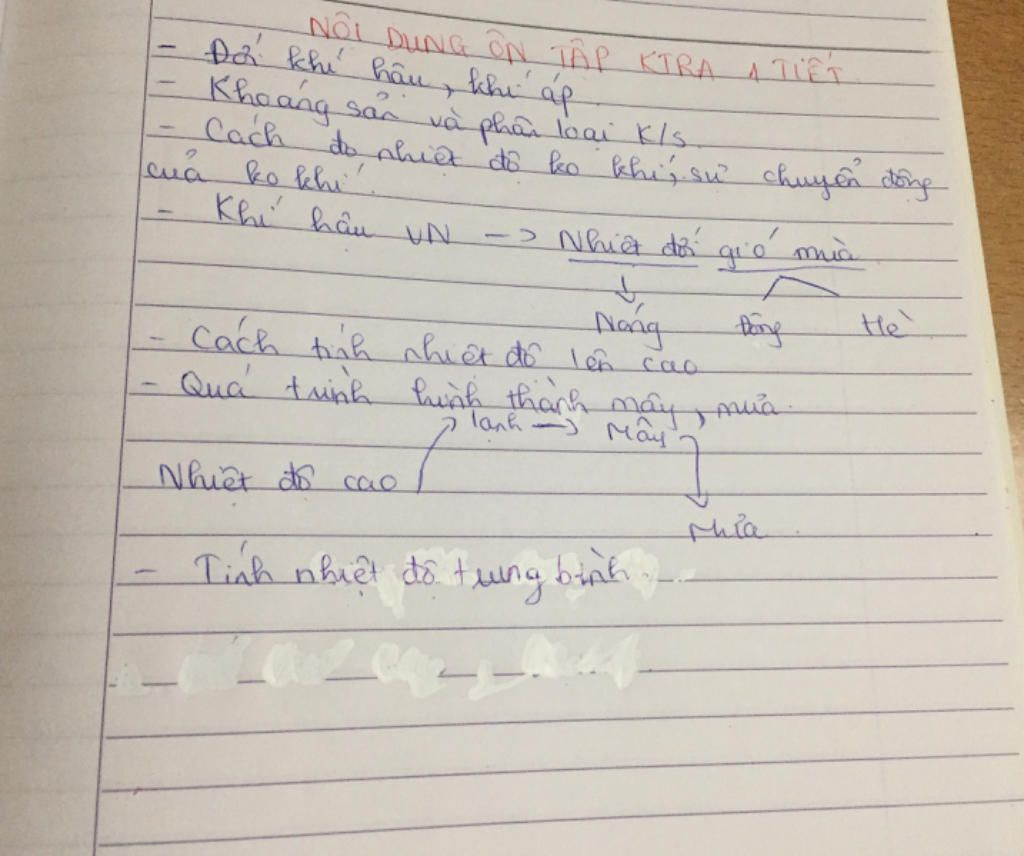 NỘI DUNG ÔN TẬP KTRA 1 TIẾT
- Đới khí hậu, khí áp
- Khoáng sản và phân loại K/s.
- Cách đo nhiệt độ ko khí, sự chuyển động
của ko khí.
- Khí hậu VN -> Nhiệt đới gió mùa
Nóng Đông Hè
- Cách tính nhiệt độ lên cao
- Quá trình hình thành mây, mưa.
lạnh -> Mây
Nhiệt độ cao
Mưa.
- Tính nhiệt độ trung bình.